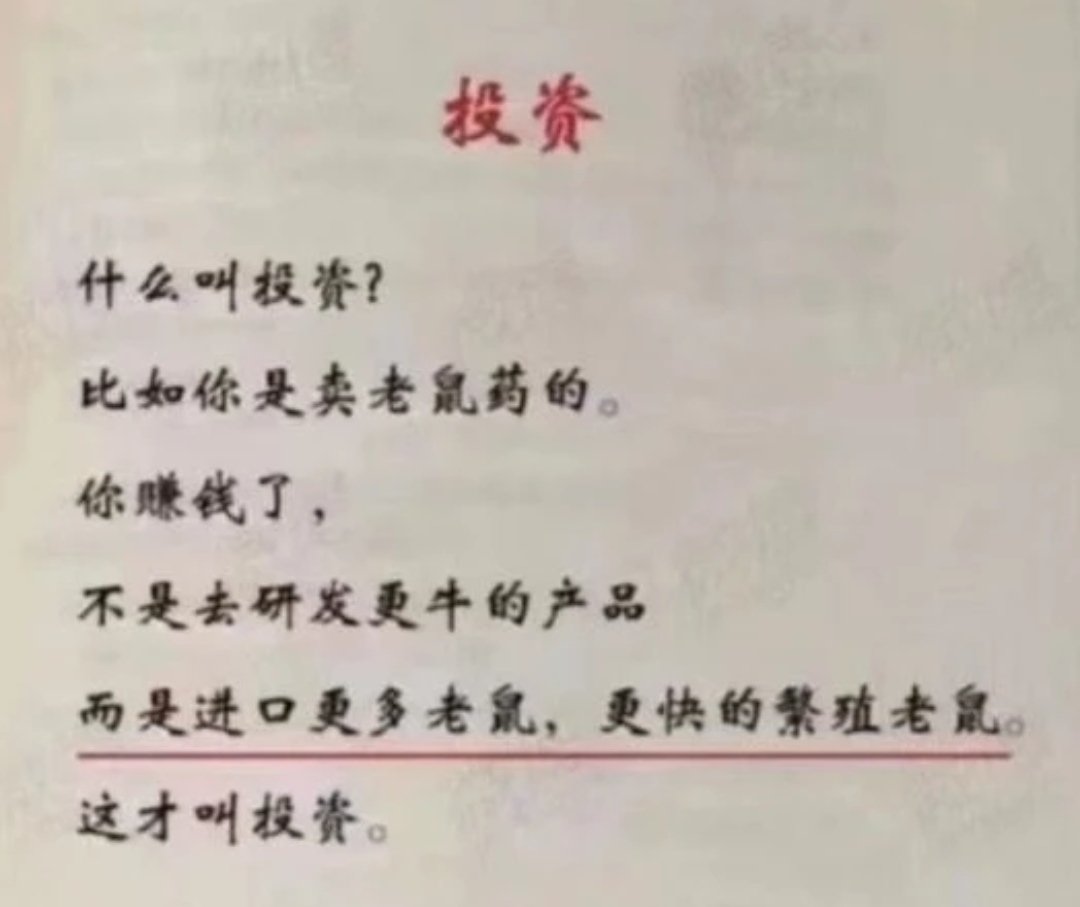 投资
什么叫投资?
比如你是卖老鼠药的。
你赚钱了,
不是去研发更牛的产品
而是进口更多老鼠,更快的繁殖老鼠。
这才叫投资。